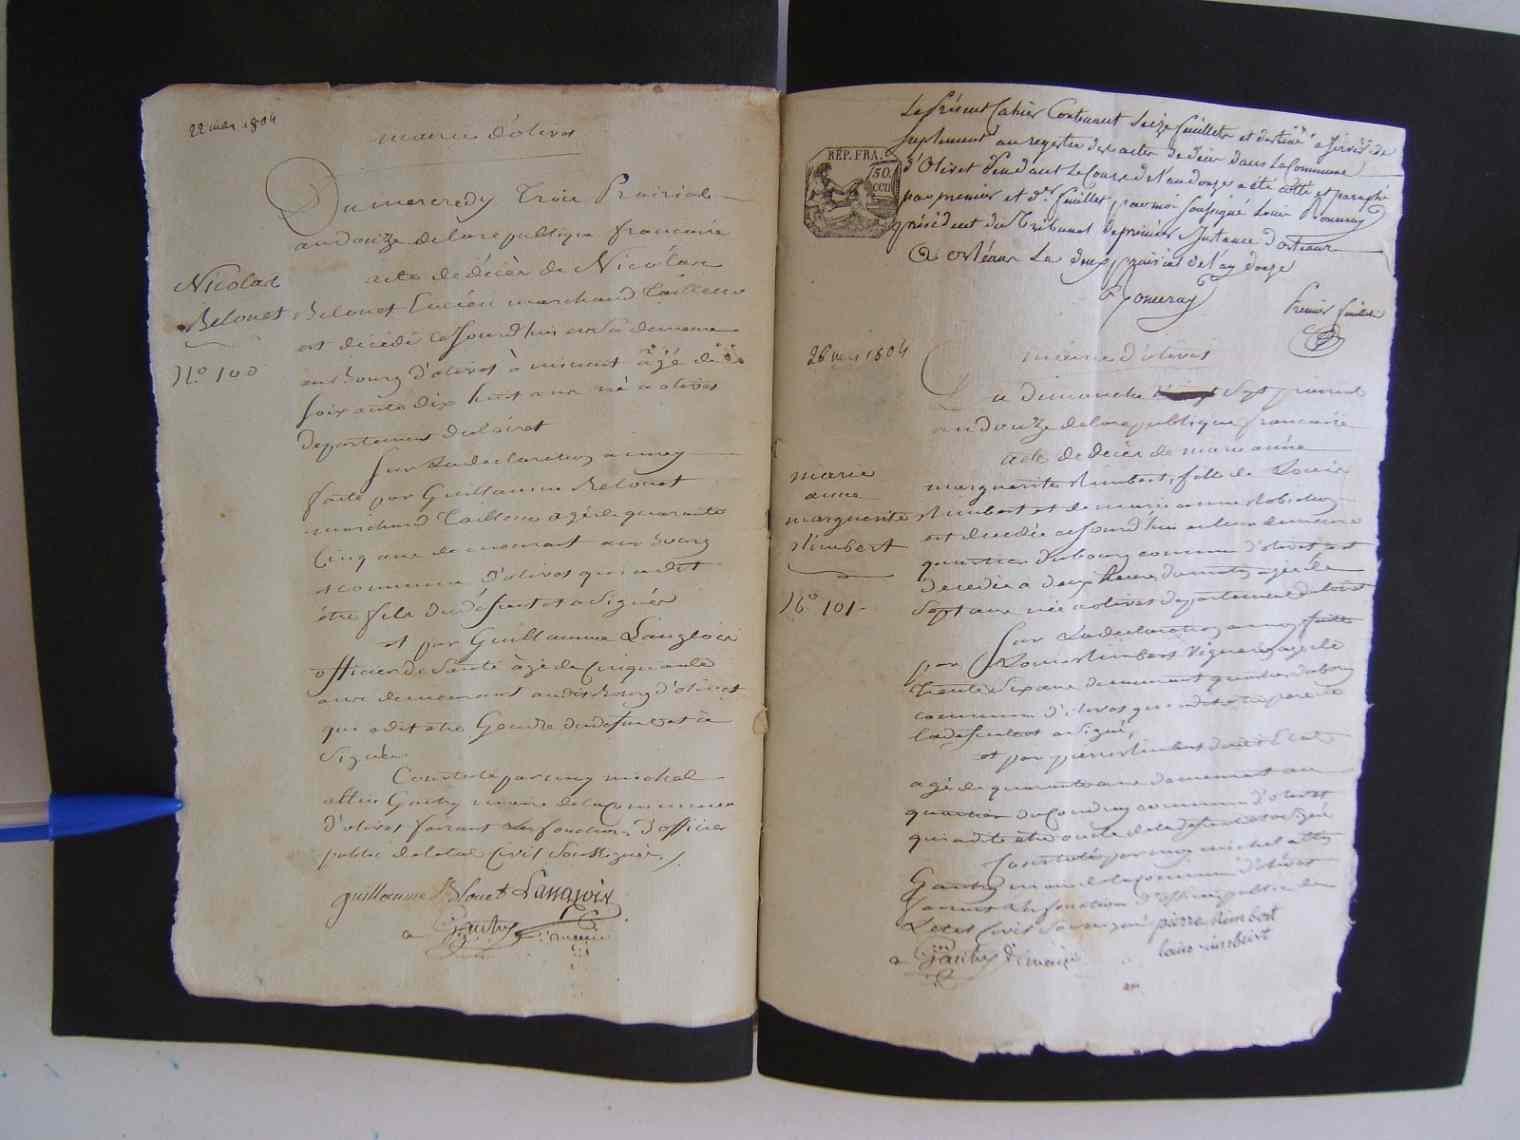 22 mai 1804
mairie d'olivet
Du mercredy Trois Prairial
an douze de la republique francaise
acte de décès de Nicolas
Nicolas
Belouet
N.o 100
Belouet Lucien marchand Tailleur
est décédé cejourd'hui en sa demeure
au Bourg d'olivet à âgé de
soixante dix huit ans né a olivet
departement du loiret
Sur La declaration a moy
faite par Guillaume Belouet
marchand Tailleur agé de quarante
Cinq ans demeurant au Bourg
et commune d'olivet qui a dit
être fils du défunt et a Signé
et par Guillaume Langlois
officier de Santé âgé de Cinquante
ans demeurant audit Bourg d'olivet
qui a dit etre Gendre du defunt et a
Signé
Constaté par moy michel
altin Gautry maire de la Commune
d'olivet faisant Les fonctions d'officier
public de l'etat Civil Soussigné
guillaume Belouet Langlois
Gautry maire
Le présent Cahier Contenant Seize feuillets et destiné a Servir de
suplement au registre des actes de décès dans La Commune
d'Olivet pendant Le Cours de l'an douze a été cotté et paraphé
par premier et d.er feuillet par moi soussigné Louis
président du Tribunal de premier Instance d'orleans
a orléans Le deux prairial de l'an douze
RÉP. FRA.
50.
CEN
Premier feuillet
26 mai 1804
mairie d'olivet
Du dimanche Sept prairial
an douze de la republique francaise
acte de décès de marie anne
marie
anne
marguerite
Rimbert
N.o 101
marguerite Rimbert, fille de Louis
Rimbert et de marie anne
est decedée cejourd'hui en leur demeure
quartier du bourg commune d'olivet est
decedée a deux heures du matin agée de
Sept ans née a olivet departement du loiret
Sur La declaration a moy faitte
par Louis Rimbert Vigneron agé de
Trente Six ans demeurant quartier du bourg
commune d'olivet qui a dit etre pere de
la defunte et a Signé,
et par pierre Rimbert
agé de quarante ans demeurant au
quartier du Coudray commune d'olivet
qui a dit etre oncle de la defunte et a Signé
Constaté par moy michel altin
Gautry maire de la commune d'olivet
faisant Les fonctions d'officier public de
L'etat Civil Soussigné pierre Rimbert
Gautry maire louis rimbert